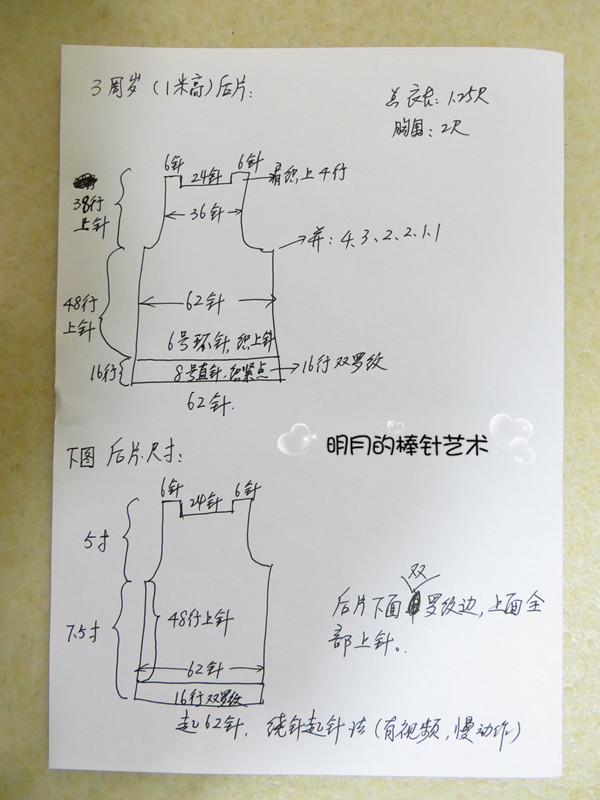 3周岁（1米高）后片：
总衣长：1.25尺
胸围：2尺
6针 24针 6针
肩织上4行
38行
上针
36针
→ 并：4、3、2、2、1、1
48行
上针
62针
6号环针，织上针
16行
8号直针，织紧点
→16行双罗纹
62针.
明月的棒针艺术
下图 后片尺寸：
6针 24针 6针
5寸
双
后片下面罗纹边，上面全
部上针。
7.5寸
48行上针
62针
16行双罗纹
起62针，绕针起针法（有视频，慢动作）